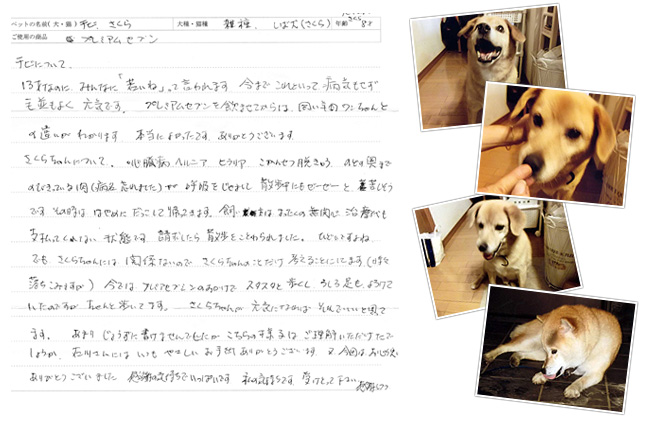 ペットの名前(犬・猫) チビ、さくら 犬種・猫種 雑種、しば犬(さくら) 年齢 8才
ご使用の商品 プレミアムセブン
チビについて、
13才なのに、みんなに「若いね」って言われます 今まで これといって 病気もせず
毛並もよく 元気です。プレミアムセブンを飲ませてからは、同い年のワンちゃんと
の違いが わかります 本当によかったです。ありがとうございます
さくらちゃんについて、心臓病、ヘルニア ヒクリア、こかんせつ脱きゅう、のどの奥まで
のびきっている肉(病名 忘れました)が 呼吸をじゃまし 散歩中にもゼーゼーと 苦しそう
です その時は はやめに だっこして 帰ってきます。飼い主は まったくの無関心 治療代も
支払ってくれない 状態です 請求したら 散歩をことわられました。ひどいですよね
でも さくらちゃんには 関係ないので さくらちゃんのことだけ 考えることにしてます(時々
落ちこみますが) 今では プレミアムセブンのおかげで スタスタと歩くし うしろ足も
いたのですが ちゃんと歩いてます。 さくらちゃんが 元気に それでいいと思って
ます。 あまり じょうずに書けませんでしたが こちらの様子は ご理解いただけたで
しょうか、 には いつも やさしい お手紙 ありがとうございます 又 今回は
ありがとうございました 感謝の気持ちでいっぱいです 私の気持ちです 受けとって下さい